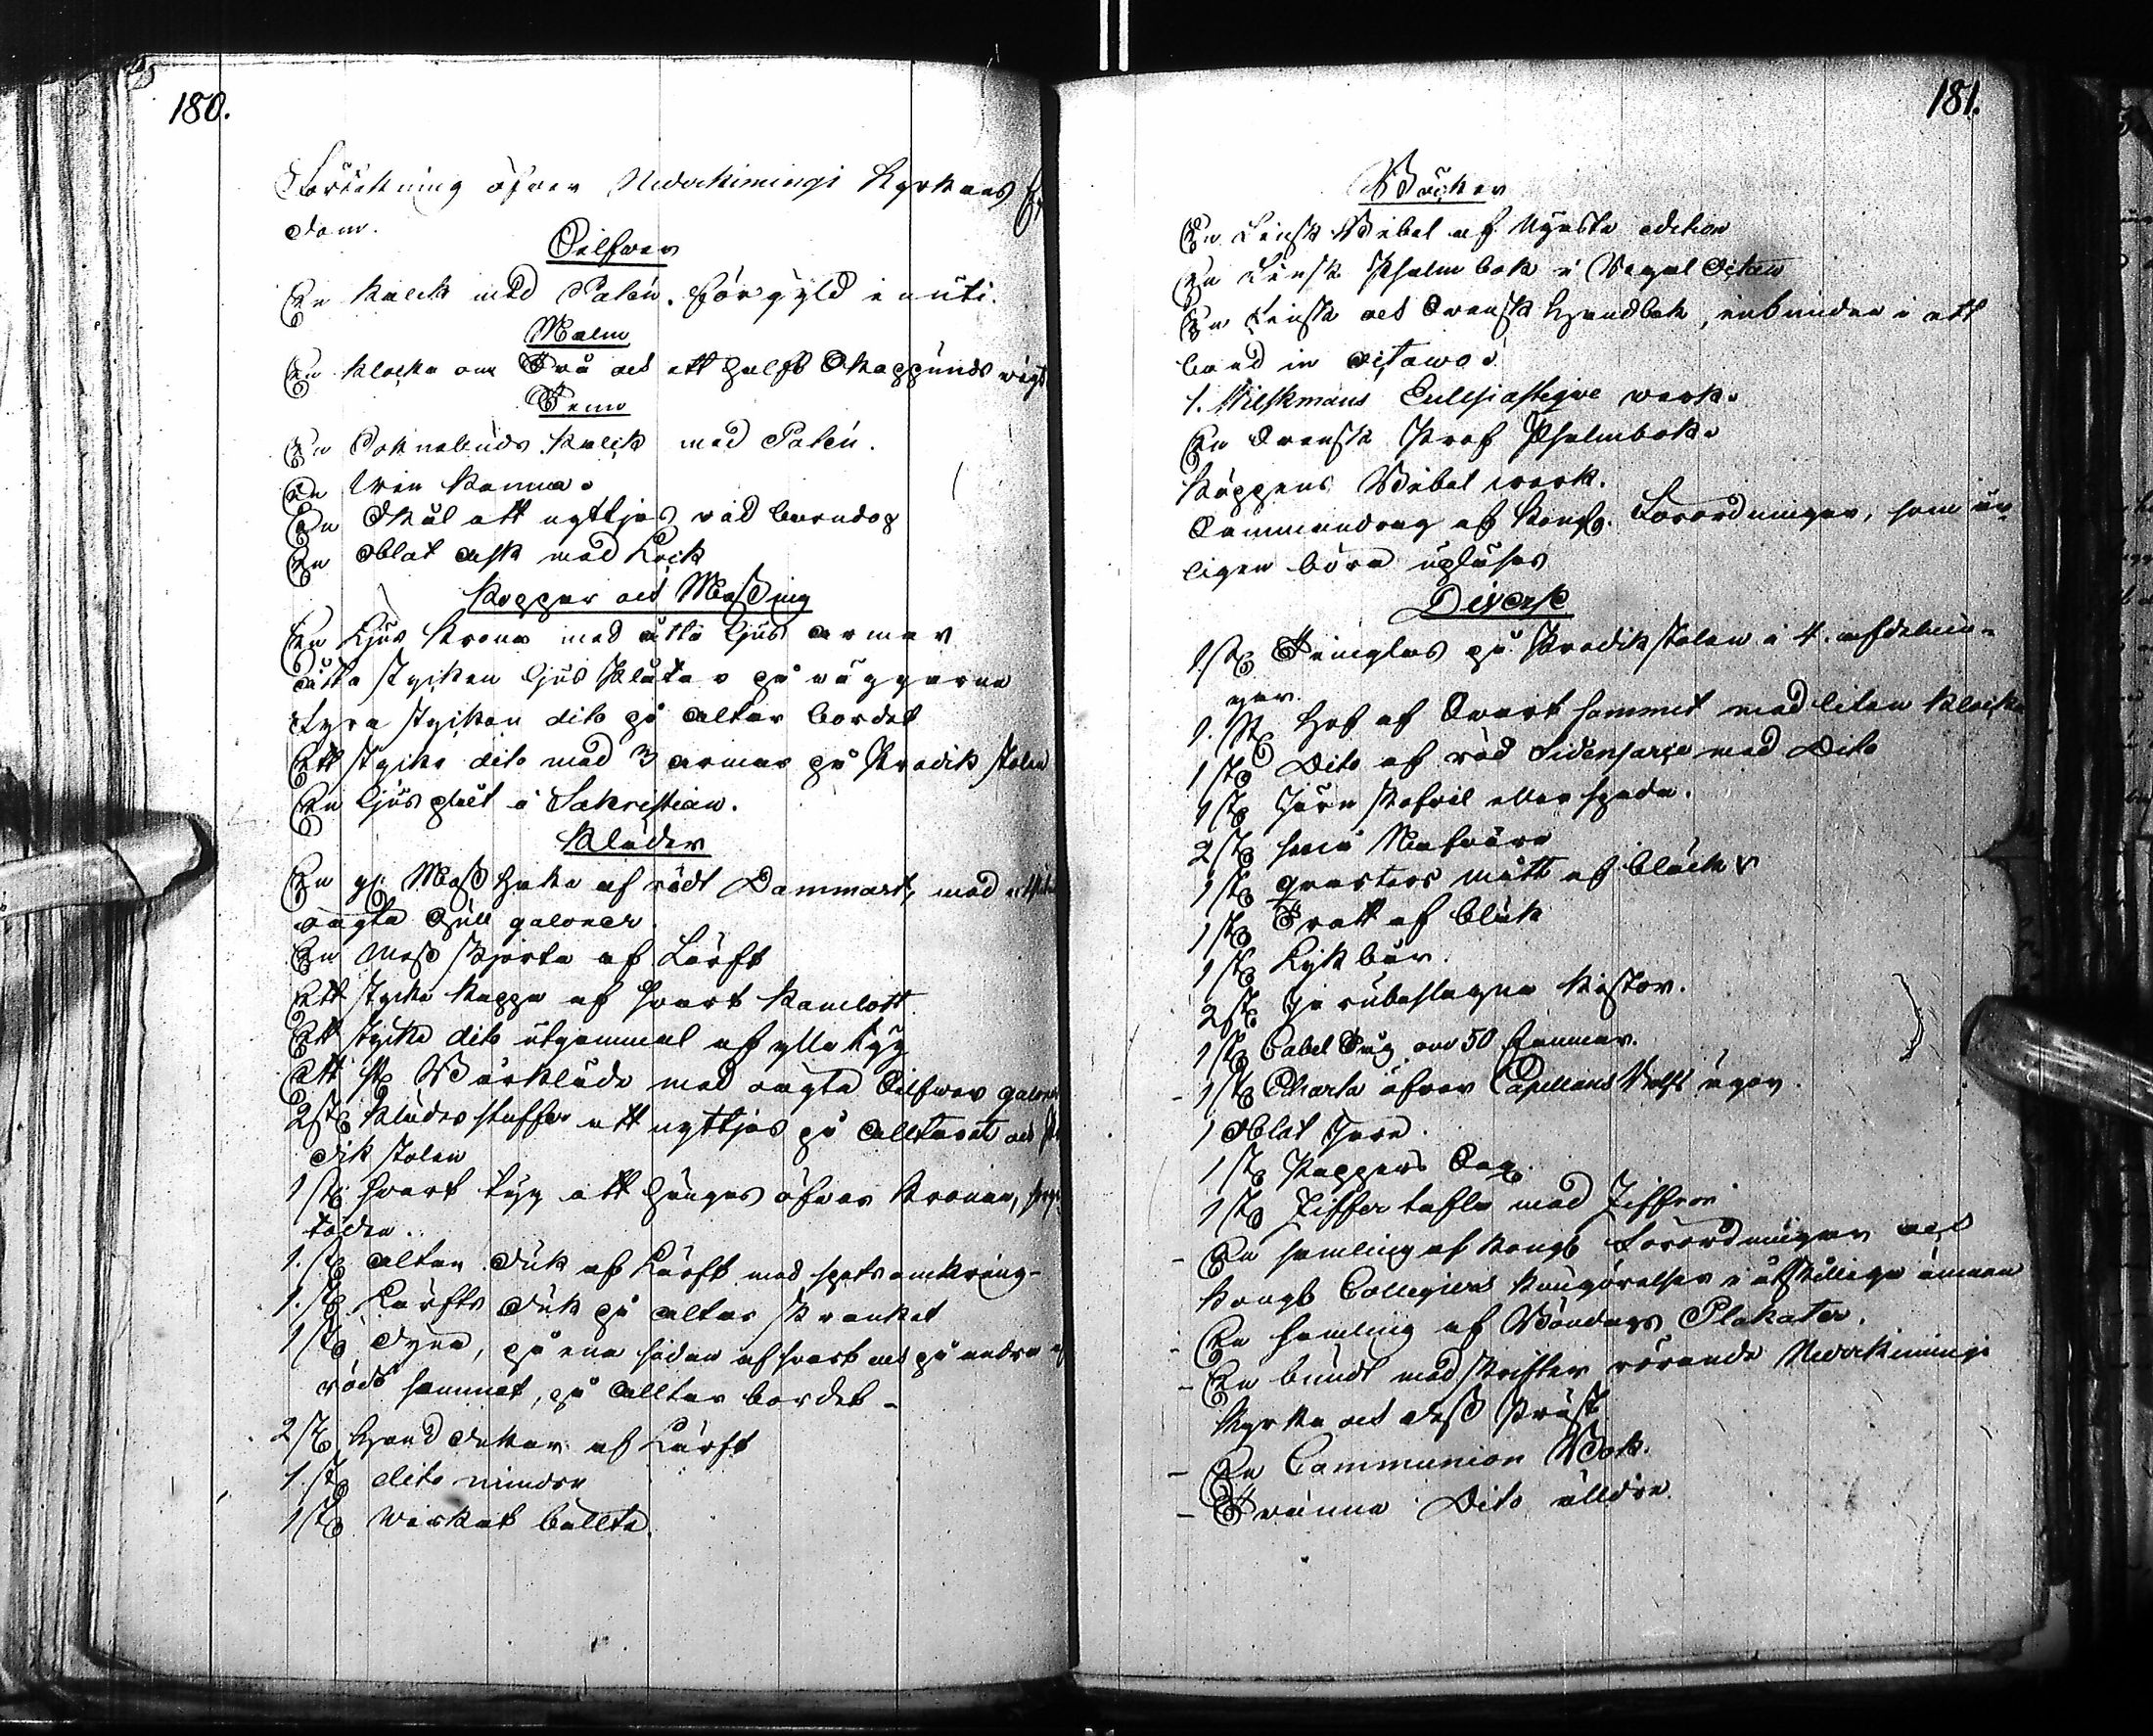 180.
Förtekning öfver Nedvetimingi Kyrkans
dom.
Silfver
En Kalck med Patén. förgyld inuti.
Malm
En Klocka om Två och ett halft Skeppunds vigt
Tenn
En Soknebuds Kalck med Patén.
En Vin Kanna.
En Skål att nyttjas vid barndop
En Oblat ask med Lock
Koppar och Mässing
En Ljus Krona med åtta Ljus armar
åtta stycken ljus Plåtar på väggarna
fyra stycken dito på altar bordet
Ett stycke dito med 3 armar på Predik stolen
En Ljus plåt i Sakristian.
Kläder
En Mass Hake af rödt Dammast, med
ägta Gull galoner
En Mess skjorta af Lärft
Ett stycke Kappa af svart Kamlott
Ett stycke dito utgammal af ylle tyg
Ett st Bårkläde med ägta Silfver galoner
2 st Klädes stuffer att nyttjas på Alltaret och
dik stolen
1 st svart tyg att hänges öfver Kronan,
töden.
1. st altar duk af Lärft med spets omkring-
1. st Lärfts duk på altar skranket
1 st dyna, på ena sidan af svart och på andra af
rödt sammet, på Alltar bordet -
2 st Hand dukar af Lärft
1 st dito mindre
1 st virkat bällte.
181.
Böcker
En Finsk Bibel af Nyasta edition
En Finsk Psalmbok i Regal Octav
En Finsk och Svensk Handbok, inbunden i ett
band in octavo.
1. Wilskmans Ecclesiastique verk.
En Svensk Prof Psalmbok.
Köppens Bibel werk.
Sammandrag af Kongl. Förordningar, som år-
ligen böra upläsas
Diverse
1. st Timglas på Predikstolen i 4. afdelnin-
gar.
1. st Hof af Svart sammet med liten Klocka
1 st Dito af röd Sidensarge med Dito
1 st Järn skofvel eller spada.
2 st
1 st qvarters mått af bläck
1 st Tratt af bläk
1 st Lyk bår.
2 st Jernbeslagna Kistor.
1 st Cabel Tug om 50 famnar.
- 1 st Charta öfver Capellans Bolst ägor.
1 Oblat Jern.
1 st Kappers
1 st Ziffer tafla med Ziffror
- En samling af Kongl Förordningar och
Kongl Collegiers Kungörelser i åtskillige ämnen
- En samling af Böndags Plakater.
- En bundt med skrifter rörande Nedvetimingi
Kyrka och dess Präst
- En Communion Bok.
- Tvänne Dito älldre